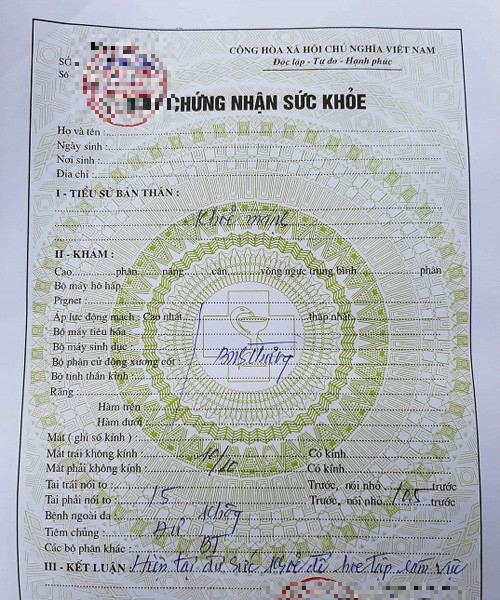 CỘNG HÒA XÃ HỘI CHỦ NGHĨA VIỆT NAM
SỞ
Độc lập - Tự do - Hạnh phúc
Số
CHỨNG NHẬN SỨC KHỎE
Họ và tên :
Ngày sinh :
Nơi sinh :
Địa chỉ :
I - TIỂU SỬ BẢN THÂN :
Khoẻ mạnh
II - KHÁM :
Cao phân nặng cân vòng ngực trung bình phân
Bộ máy hô hấp
Pignet :
Áp lực động mạch : Cao nhất thấp nhất
Bộ máy tiêu hóa
Bộ máy sinh dục :
Bình thường
Bộ phận cử động xương cốt
Bộ tinh thần kinh :
Răng :
Hàm trên :
Hàm dưới
Mắt ( ghi số kính ) :
Mắt trái không kính : 10/10 Có kính
Mắt phải không kính : Có kính
Tai trái nói to : Trước, nói nhỏ trước
Tai phải nói to : 15 Trước, nói nhỏ 105 trước
Bệnh ngoài da không
Tiêm chủng : Đủ
Các bộ phận khác : BT
III - KẾT LUẬN : Hiện tại đủ sức khoẻ để học tập làm việc